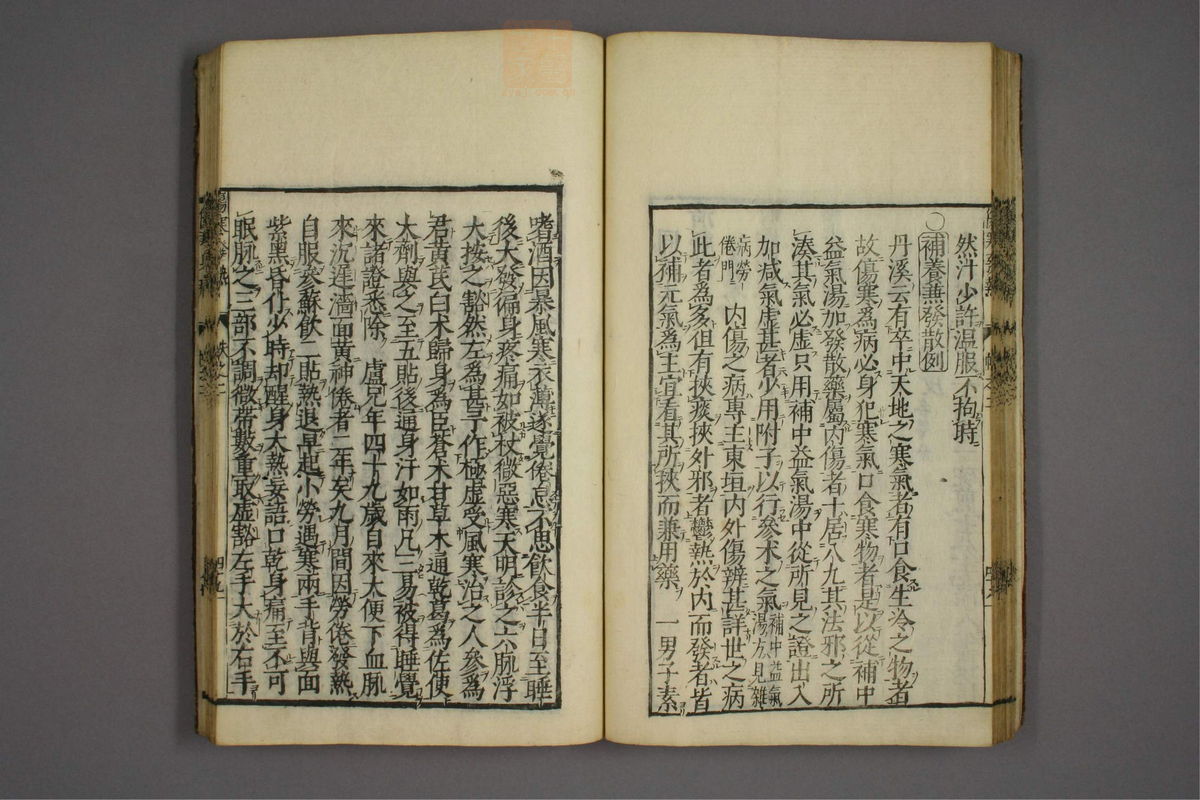 然汁少許温服不拘時
○補養兼發散例
丹溪云有卒中天地之寒氣者有口食生冷之物者
故傷寒爲病必身犯寒氣口食寒物者是以從補中
益氣湯加發散藥屬内傷者十居八九其法邪之所
湊其氣必虛只用補中益氣湯中從所見之證出入
加減氣虛甚者少用附子以行參术之氣補中益氣湯方見雜
病勞倦門 内傷之病專主東垣内外傷辨甚詳世之病
此者爲多但有挾痰挾外邪者鬱熱於内而發者皆
以補元氣爲主宜看其所挾而兼用藥 一男子素
嗜酒因暴風寒衣薄遂覺倦怠不思飲食半日至睡
後大發熱徧身疼痛如被杖微惡寒天明診之六脉浮
大按之豁然左爲甚予作極虛受風寒治之人參爲
君黄芪白术歸身爲臣蒼术甘草木通乾葛爲佐使
大劑與之至五貼後通身汗如雨凡三易被得睡覺
來諸證悉除 盧兄年四十九歲自來大便下血脉
來沉遲濇面黄神倦者二年矣九月間因勞倦發熱
自服參蘇飲二貼熱退早起小勞遇寒兩手背與面
紫黑昏仆少時却醒身大熱妄語口乾身痛至不可
眠脉之三部不調微帶數重取虛豁左手大於右手